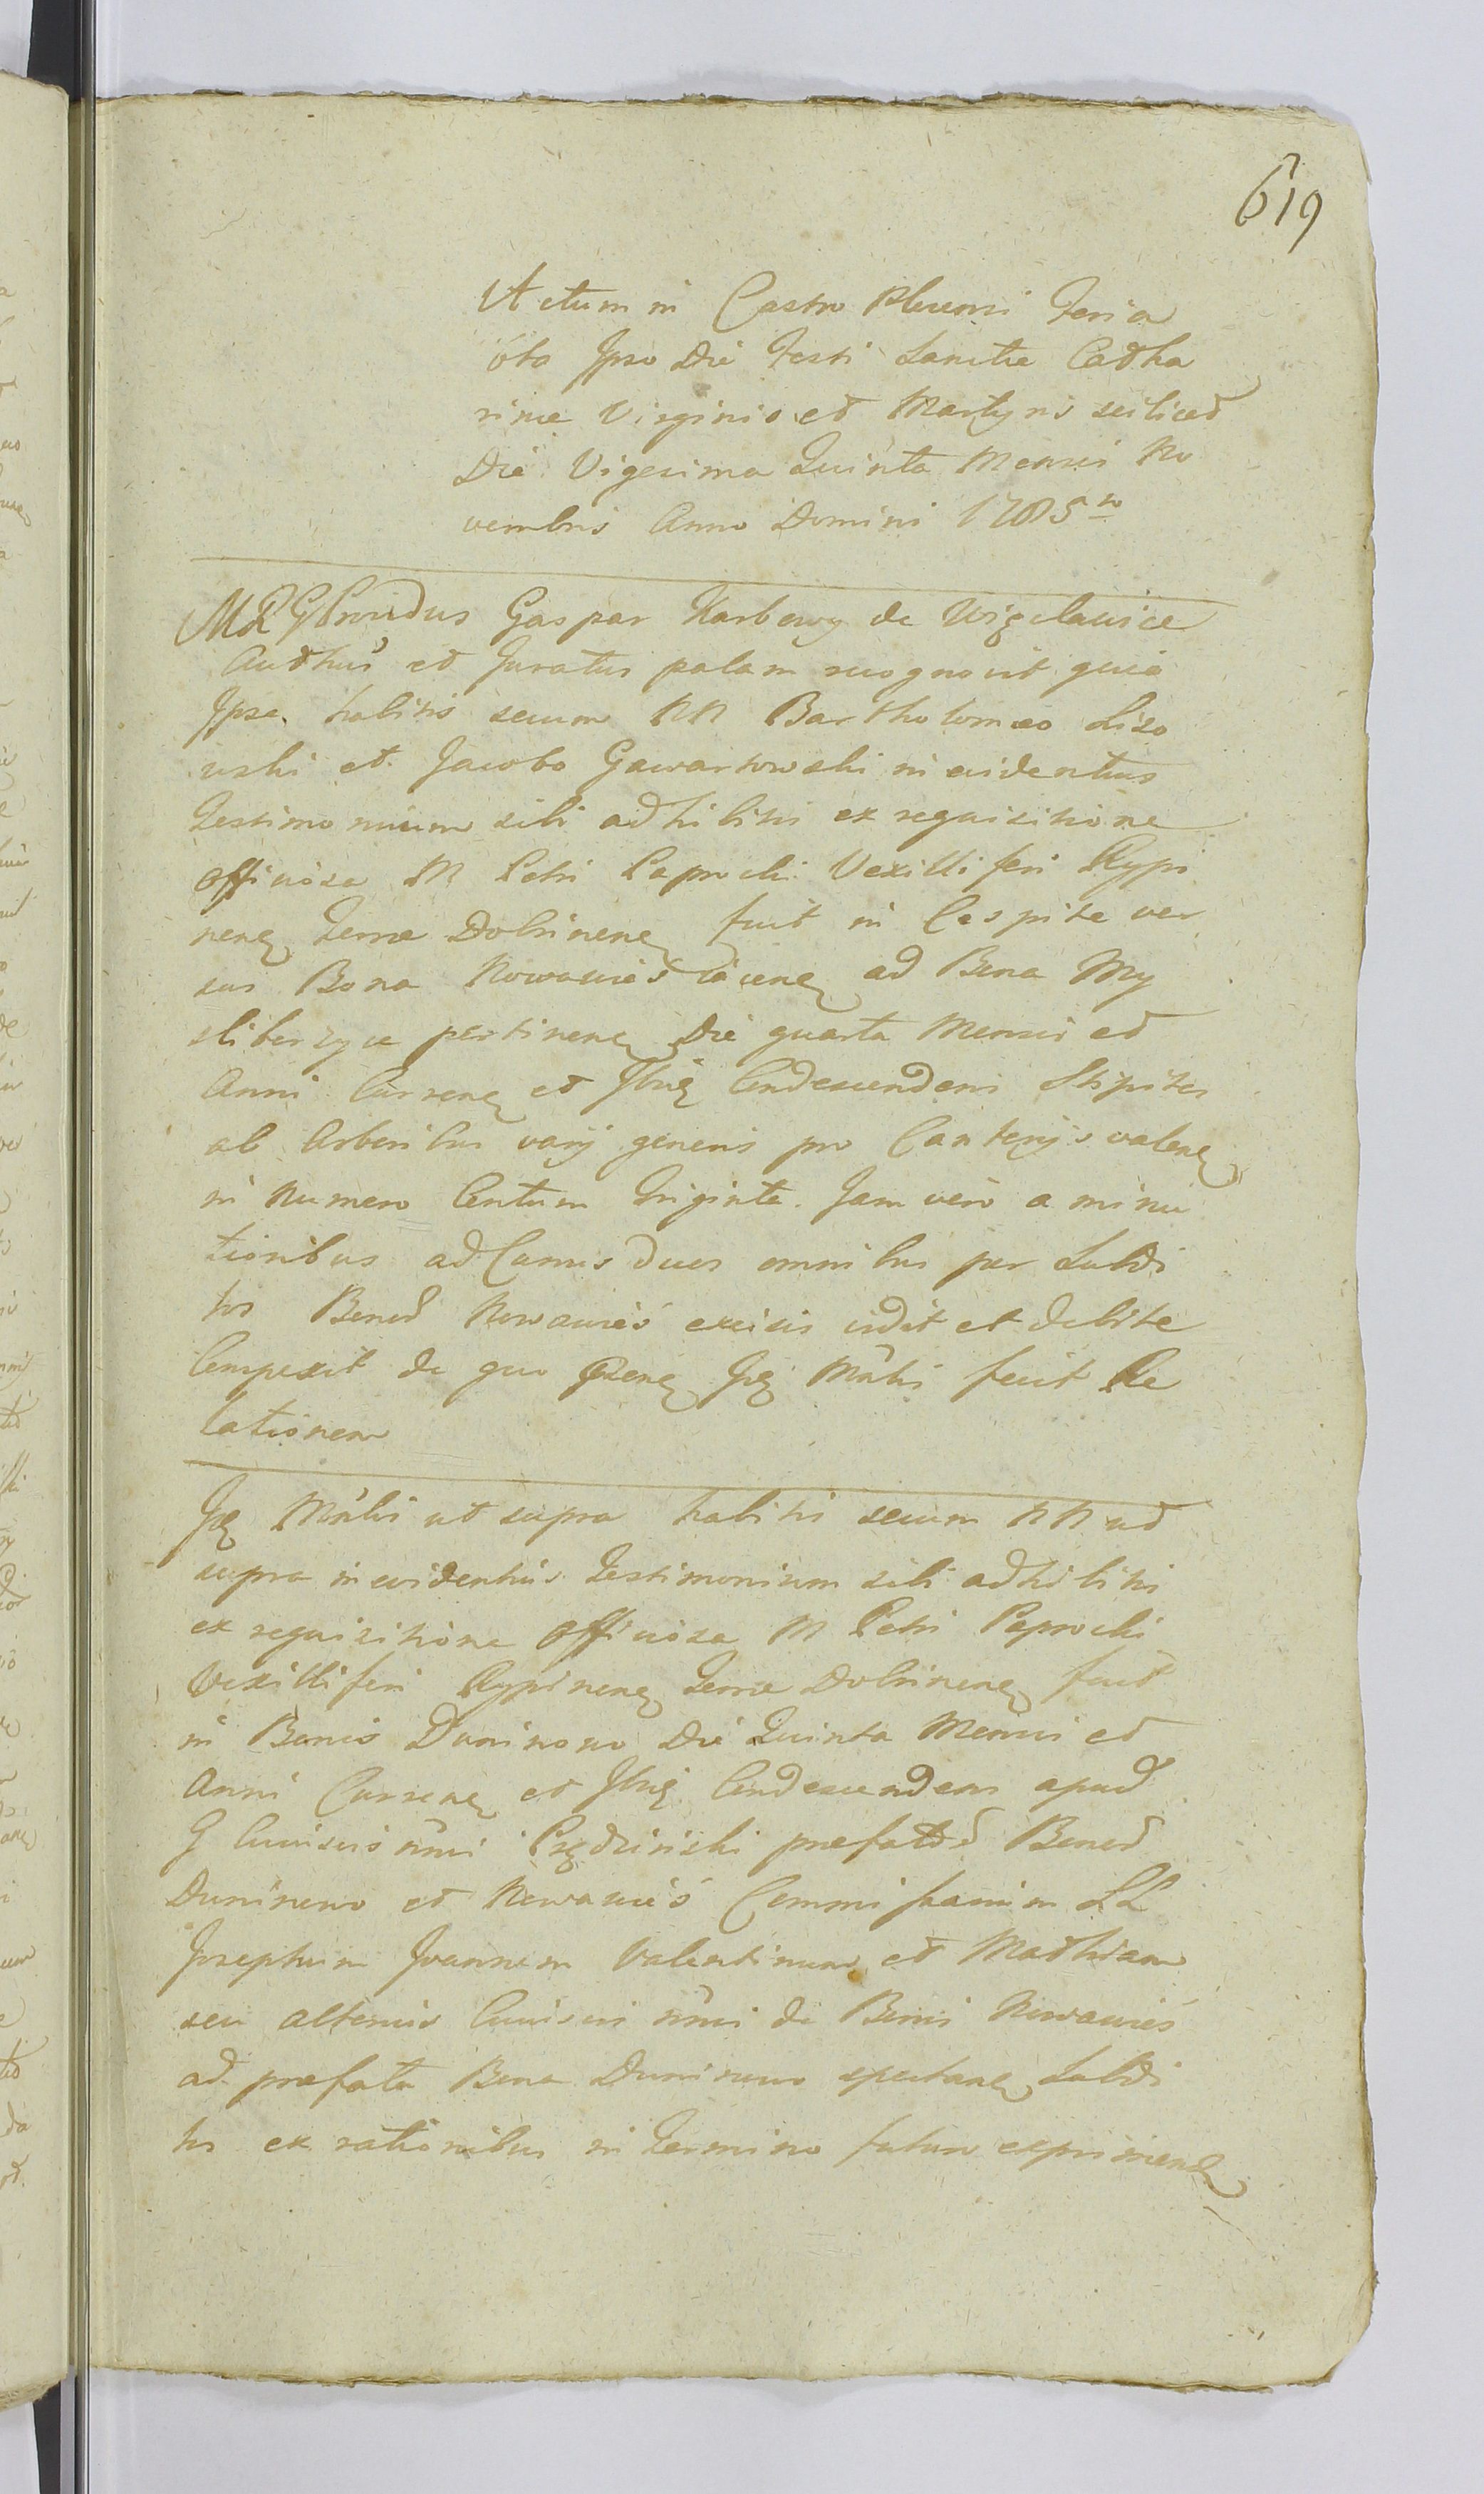 619
Actum in Castro Plocensi Feria
6ta Ipso Die Festi Sanctae Catha
rinae Virginis et Martyris scilicet
Die Vigesima Quinta Mensis No
vembris Anno Domini 1785to
MR G Providus Gaspar Karbowy de
Authus et Juratus palam recognovit quia
Ipse habitis secum NN Bartholomaeo Liso
wski et Jacobo Gawartowski in evidentius
Testimonium sibi adhibitis ex requisitione
officiosa M Petri Paprocki Vexilliferi Rypi
nens Terrae Dobrinens fuit in Cespite ver
sus Bona Nowawieś iacens ad Bona My
sliborzyce pertinens Die quarta Mensis et
Anni Currens et Ibiq Condescendens Stipites
ab Arboribus varij generis pro Canterijs valens
in Numero Centum Triginta. Jam vero a minu
tioribus ad Currus duos omnibus per Subdi
tos Bonor Nowawieś excisis vidit et debite
Conspexit de quo Prens Ips Mnlis fecit Re
lationem
Ips Mnlis ut supra habitis secum NN ut
supra in evidentius Testimonium sibi adhibitis
ex requisitione officiosa M Petri Paprocki
Vexilliferi Rypinens Terrae Dobrinens fuit
in Bonis Duninowo Die Quinta Mensis et
Anni Currens et Ibiq Condescendens apud
G Cuiusvis nnis Prędzinski praefator Bonor
Duninowo et Nowawieś Commissarium LL
Josephum Joannem Valentinum et Mathiam
seu alterius Cuiusvis nnis de Bonis Nowawieś
ad praefata Bona Duninowo spectans Subdi
tos ex rationibus in Termino futuro exprimens